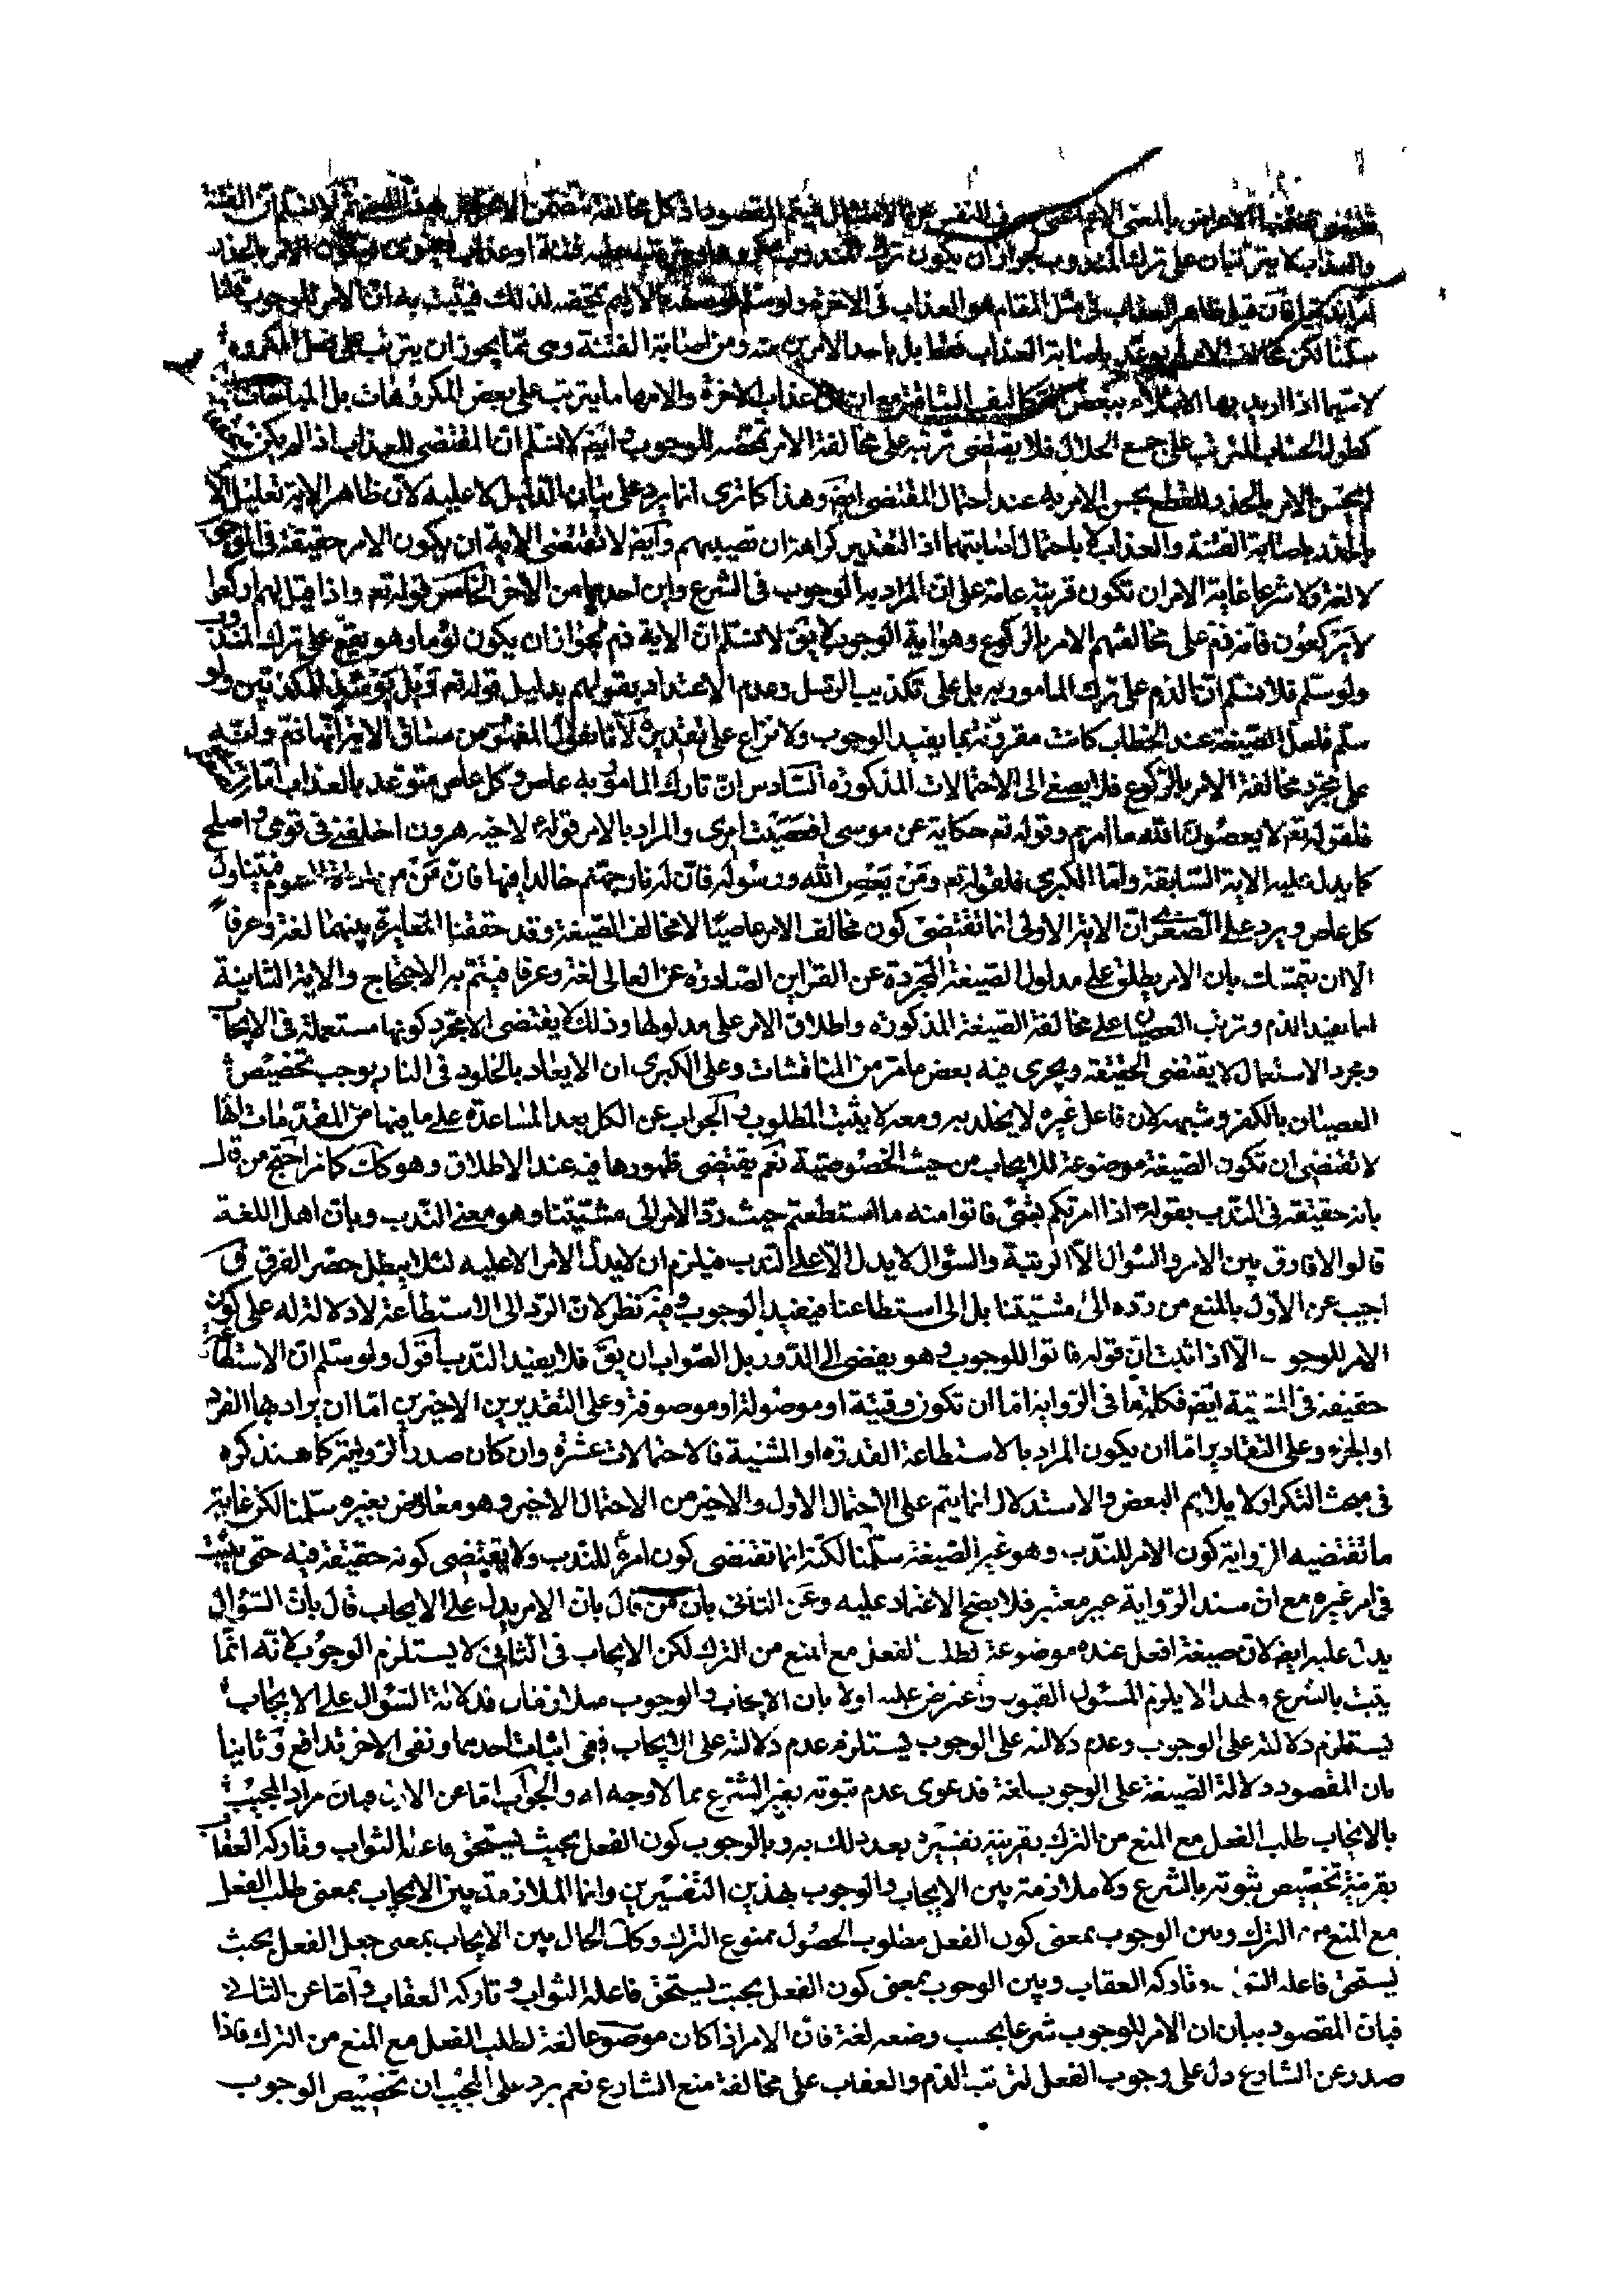 الاعراض بالمعنى الاعم عن الامتثال فيتم المقصود اذ كل مخالفة تتضمن الاعراض ثم لا نسلم ان الفتنة
والعذاب لا يترتبان على ترك المندوب لجواز ان يكون ترك المندوب فتنة او عذاب الامر بالحذر
فان قيل ظاهر العذاب فى مثل المقام هو العذاب فى الاخرة ولو سلم الاليم يخصه لذلك فيثبت به ان الامر للوجوب قلنا
سلمنا لكن مخالف الامر لم يوعد باصابة العذاب فقط بل باحد الامرين منه ومن اصابة الفتنة وهى مما يجوز ان يترتب على فعل المكروه
لا سيما اذا اريد بها الابتلاء ببعض التكاليف الشاقة مع ان عذاب الاخرة والامها ما يترتب على بعض المكروهات بل المباحات
كطول الحساب المترتب على جمع الحلال فلا يقتضى ترتبه على مخالفة الامر تخصه للوجوب وايض لا نسلم ان المقتضى للعذاب اذا لم يكن
لم يحسن الامر بالحذر للقطع بحسن الامر به عند احتمال المقتضى ايض وهذا كما ترى انما يرد على بيان الدليل لا عليه لان ظاهر الاية تعليل الامر
بالحذر باصابة الفتنة والعذاب لا باحتمال اصابتهما اذ التقدير كراهة ان تصيبهم وايض لا تقتضى الاية ان يكون الامر حقيقة فى الوجوب
لا لغة ولا شرعا غاية الامر ان تكون قرينة عامة على ان المراد به الوجوب فى الشرع واين احدهما من الاخر الخامس قوله تع واذا قيل لهم اركعوا
لا يركعون فانه ذم على مخالفتهم الامر بالركوع وهو اية الوجوب لا يق لا نسلم ان الاية ذم لجواز ان يكون لؤما وهو يقع على ترك المندوب
ولو سلم فلا نسلم ان الذم على ترك المامور به بل على تكذيب الرسل وعدم الاعتداد بقولهم بدليل قوله تع ويل يومئذ للمكذبين ولو
سلم فلعل الصيغة عند الخطاب كانت مقرونة بما يفيد الوجوب ولا نزاع على تقديره لانا نقول المفهوم من مساق الاية انها ذم وانه
على مجرد مخالفة الامر بالركوع فلا يصغى الى الاحتمالات المذكورة السادس ان تارك المامور به عاص وكل عاص متوعد بالعذاب اما
فلقوله تع لا يعصون الله ما امرهم وقوله تع حكاية عن موسى افعصيت امرى والمراد بالامر قوله لاخيه هرون اخلفنى فى قومى واصلح
كما يدل عليه الاية السابقة واما الكبرى فلقوله تع ومن يعص الله ورسوله فان له نار جهنم خالدا فيها فان من من العموم فيتناول
كل عاص ويرد على الصغرى ان الاية الاولى انما تقتضى كون مخالف الامر عاصيا لا مخالف الصيغة وقد حققنا المغايرة بينهما لغة وعرفا
الا ان يتمسك بان الامر يطلق على مدلول الصيغة المجردة عن القراين الصادرة عن العالى لغة وعرفا فيتم به الاحتجاج والاية الثانية
انما يفيد الذم وترتب العصيان على مخالفة الصيغة المذكورة واطلاق الامر على مدلولها وذلك لا يقتضى الا مجرد كونها مستعملة فى الايجاب
ومجرد الاستعمال لا يقتضى الحقيقة ويجرى فيه بعض ما مر من المناقشات وعلى الكبرى ان الايعاد بالخلود فى النار يوجب تخصيص
العصيان بالكفر وشبهه لان فاعل غيره لا يخلد به ومعه لا يثبت المطلوب والجواب عن الكل بعد المساعدة على ما فيها من المقدمات انها
لا تقتضى ان تكون الصيغة موضوعة للايجاب من حيث الخصوصية نعم يقتضى ظهورها فيه عند الاطلاق وهو كاف كما مر احتج من قال
بانه حقيقة فى الندب بقوله ص اذا امرتكم بشئ فاتوا منه ما استطعتم حيث رد الامر الى مشيتنا وهو معنى الندب وبان اهل اللغة
قالوا لا فارق بين الامر والسؤال الا الرتبة والسؤال لا يدل الا على الندب فيلزم ان لا يدل الامر الا عليه لئلا يبطل حصر الفرق فى
اجيب عن الاول بالمنع من رده الى مشيتنا بل الى استطاعتنا فيفيد الوجوب وفيه نظر لان الرد الى الاستطاعة لا دلالة له على كون
الامر للوجوب الا اذا ثبت ان قوله فاتوا للوجوب وهو يفضى الى الدور بل الصواب ان يق فلا يفيد الندب اقول ولو سلم ان الاستطاعة
حقيقة فى المشية ايض فكلمة ما فى الرواية اما ان تكون وقتية او موصولة او موصوفة وعلى التقديرين الاخيرين اما ان يراد بها الفرد
او الجزء وعلى التقادير اما ان يكون المراد بالاستطاعة القدرة او المشية فالاحتمالات عشرة وان كان صدر الرواية كما سنذكره
فى مبحث التكرار لا يلايم البعض والاستدلال انما يتم على الاحتمال الاول والاخير من الاحتمال الاخير وهو معارض بغيره سلمنا لكن غاية
ما تقتضيه الرواية كون الامر للندب وهو غير الصيغة سلمنا لكنه انما تقتضى كون امره للندب ولا يقتضى كونه حقيقة فيه حتى يثبت
فى امر غيره مع ان سند الرواية غير معتبر فلا يصح الاعتماد عليه وعن الثانى بان من قال بان الامر يدل على الايجاب قال بان السؤال
يدل عليه ايض لان صيغة افعل عنده موضوعة لطلب الفعل مع المنع من الترك لكن الايجاب فى الثانى لا يستلزم الوجوب لانه انما
يثبت بالشرع ولهذا لا يلزم المسئول القبول واعترض عليه اولا بان الايجاب والوجوب متلازمان فدلالة السؤال على الايجاب
يستلزم دلالته على الوجوب وعدم دلالته على الوجوب يستلزم عدم دلالته على الايجاب ففى اثبات احدهما ونفى الاخر تدافع وثانيا
بان المقصود دلالة الصيغة على الوجوب لغة فدعوى عدم ثبوته بغير الشرع مما لا وجه له والجواب اما عن الاول فبان مراد المجيب
بالايجاب طلب الفعل مع المنع من الترك بقرينة تفسيره بعد ذلك به وبالوجوب كون الفعل بحيث يستحق فاعله الثواب وتاركه العقاب
بقرينة تخصيص ثبوته بالشرع ولا ملازمة بين الايجاب والوجوب بهذين التفسيرين وانما الملازمة بين الايجاب بمعنى طلب الفعل
مع المنع من الترك وبين الوجوب بمعنى كون الفعل مطلوب الحصول ممنوع الترك وكذا الحال بين الايجاب بمعنى جعل الفعل بحيث
يستحق فاعله الثواب وتاركه العقاب وبين الوجوب بمعنى كون الفعل بحيث يستحق فاعله الثواب وتاركه العقاب واما عن الثانى
فبان المقصود بيان ان الامر للوجوب شرعا بحسب وضعه لغة فان الامر اذا كان موضوعا لغة لطلب الفعل مع المنع من الترك فاذا
صدر عن الشارع دل على وجوب الفعل لترتب الذم والعقاب على مخالفة منع الشارع نعم يرد على المجيب ان تخصيص الوجوب